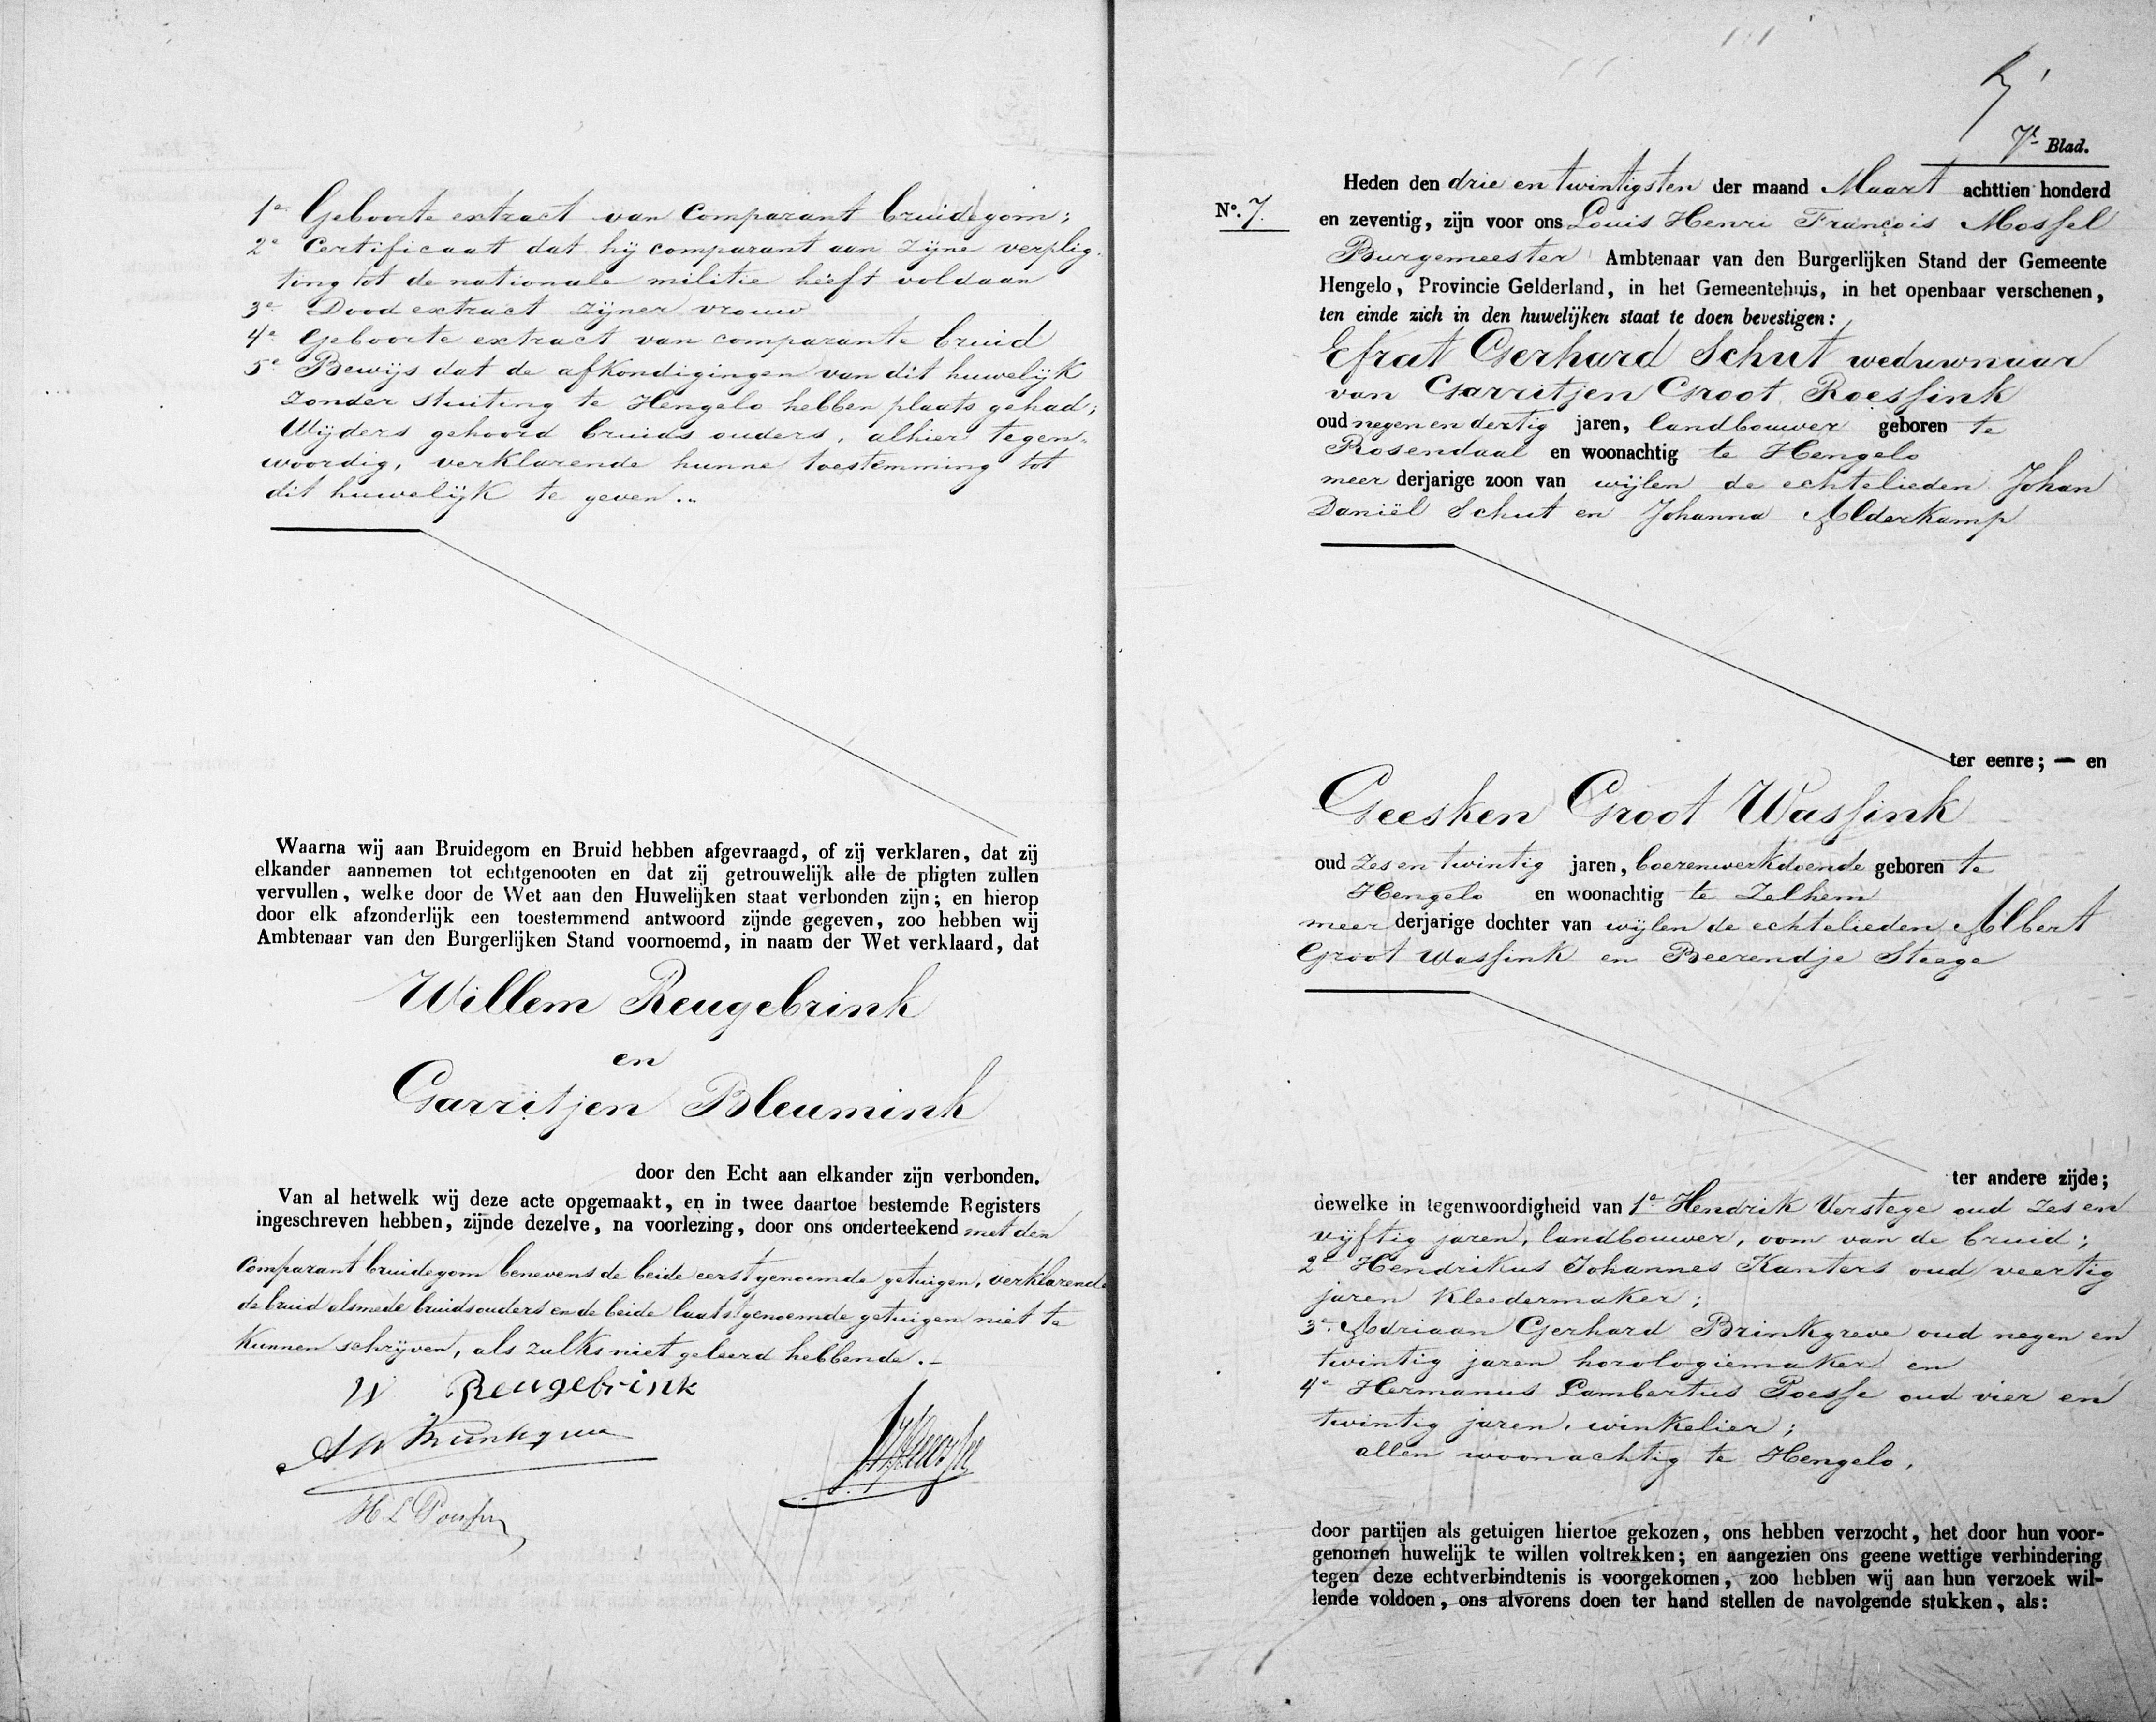 1e Geboorte extract van Comparant bruidegom;
2e Certificaat dat hij comparant aan zijne verplig-
ting tot de nationale militie heeft voldaan
3e Dood extract zijner vrouw
4e Geboorte extract van comparante bruid
5e Bewijs dat de afkondigingen van dit huwelijk
zonder stuiting te Hengelo hebben plaats gehad;
Wijders gehoord bruids ouders, alhier tegen-
woordig, verklarende hunne toestemming tot
dit huwelijk te geven.
Waarna wij aan Bruidegom en Bruid hebben afgevraagd, of zij verklaren, dat zij
elkander aannemen tot echtgenooten en dat zij getrouwelijk alle de pligten zullen
vervullen, welke door de Wet aan den Huwelijken staat verbonden zijn; en hierop
door elk afzonderlijk een toestemmend antwoord zijnde gegeven, zoo hebben wij
Ambtenaar van den Burgerlijken Stand voornoemd, in naam der Wet verklaard, dat
Willem Reugebrink
en
Garritjen Bleumink
door den Echt aan elkander zijn verbonden.
Van al hetwelk wij deze acte opgemaakt, en in twee daartoe bestemde Registers
ingeschreven hebben, zijnde dezelve, na voorlezing, door ons onderteekend met den
Comparant bruidegom benevens de beide eerstgenoemde getuigen, verklarende
de bruid alsmede bruids ouders en de beide laatstgenoemde getuigen niet te
kunnen schrijven, als zulks niet geleerd hebbende.
W Reugebrink
H L Poesse
7e Blad.
No. 7.
Heden den drie en twintigsten der maand Maart achttien honderd
en zeventig, zijn voor ons Louis Henri François Mossel
Burgemeester Ambtenaar van den Burgerlijken Stand der Gemeente
Hengelo, Provincie Gelderland, in het Gemeentehuis, in het openbaar verschenen,
ten einde zich in den huwelijken staat te doen bevestigen:
Efrat Gerhard Schut weduwnaar
van Garritjen Groot Roessink
oud negen en dertig jaren, landbouwer geboren te
Rosendaal en woonachtig te Hengelo
meer derjarige zoon van wijlen de echtelieden Johan
Daniël Schut en Johanna Alderkamp
ter eenre; — en
Geesken Groot Wassink
oud zes en twintig jaren, boerenwerkdoende geboren te
Hengelo en woonachtig te Zelhem
meer derjarige dochter van wijlen de echtelieden Albert
Groot Wassink en Beerendje Steege
ter andere zijde;
dewelke in tegenwoordigheid van 1e Hendrik Verstege oud zes en
vijftig jaren, landbouwer, oom van de bruid;
2e Hendrikus Johannes Kanters oud veertig
jaren kleedermaker;
3e. Adriaan Gerhard Brinkgreve oud negen en
twintig jaren horologiemaker en
4e Hermanus Lambertus Poesse oud vier en
twintig jaren, winkelier;
allen woonachtig te Hengelo,
door partijen als getuigen hiertoe gekozen, ons hebben verzocht, het door hun voor-
genomen huwelijk te willen voltrekken; en aangezien ons geene wettige verhindering
tegen deze echtverbindtenis is voorgekomen, zoo hebben wij aan hun verzoek wil-
lende voldoen, ons alvorens doen ter hand stellen de navolgende stukken, als: